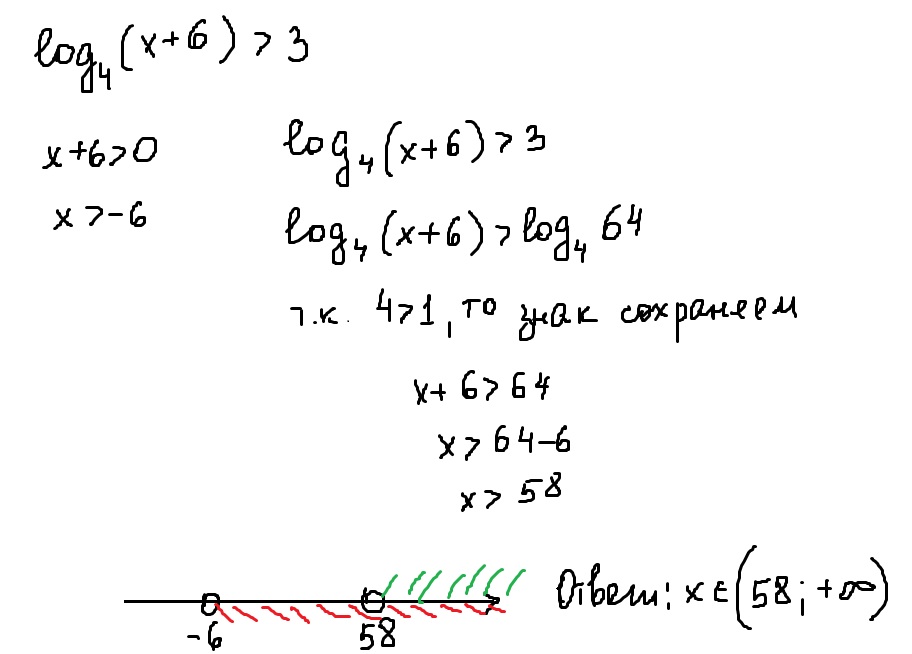 log₄(x+6) > 3
x+6>0
x>-6
log₄(x+6)>3
log₄(x+6)>log₄ 64
т.к. 4>1, то знак сохраняем
x+6>64
x>64-6
x>58
-6 58
Ответ: x∈(58;+∞)